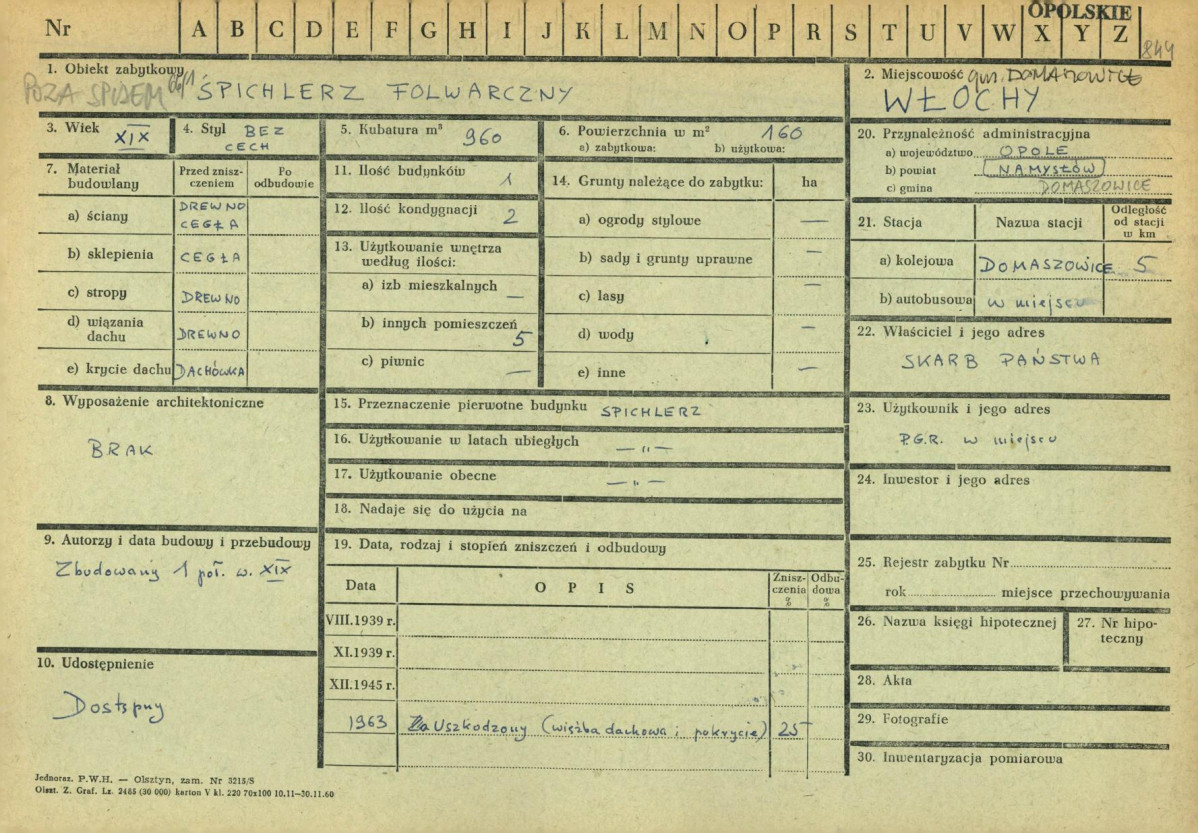 OPOLSKIE
Nr A B C D E F G H I J K L M N O P R S T U V W X Y Z
844
1. Obiekt zabytkowy
POZA SPISEM
ŚPICHLERZ FOLWARCZNY
2. Miejscowość gm. DOMASZOWICE
WŁOCHY
3. Wiek XIX
4. Styl BEZ
CECH
5. Kubatura m³ 960
6. Powierzchnia w m² 160
a) zabytkowa: b) użytkowa:
7. Materiał budowlany
Przed zniszczeniem
Po odbudowie
a) ściany DREWNO
CEGŁA
b) sklepienia CEGŁA
c) stropy DREWNO
d) wiązania dachu DREWNO
e) krycie dachu DACHÓWKA
8. Wyposażenie architektoniczne
BRAK
9. Autorzy i data budowy i przebudowy
Zbudowany 1 poł. w. XIX
10. Udostępnienie
Dostępny
11. Ilość budynków 1
12. Ilość kondygnacji 2
13. Użytkowanie wnętrza
według ilości:
a) izb mieszkalnych —
b) innych pomieszczeń 5
c) piwnic —
14. Grunty należące do zabytku: ha
a) ogrody stylowe —
b) sady i grunty uprawne —
c) lasy —
d) wody —
e) inne —
15. Przeznaczenie pierwotne budynku SPICHLERZ
16. Użytkowanie w latach ubiegłych — „ —
17. Użytkowanie obecne — „ —
18. Nadaje się do użycia na
19. Data, rodzaj i stopień zniszczeń i odbudowy
Data OPIS Zniszczenia % Odbudowa %
VIII.1939 r.
XI.1939 r.
XII.1945 r.
1963 Uszkodzony (więźba dachowa i pokrycie) 25
20. Przynależność administracyjna
a) województwo OPOLE
b) powiat NAMYSŁÓW
c) gmina DOMASZOWICE
21. Stacja Nazwa stacji Odległość od stacji w km
a) kolejowa DOMASZOWICE 5
b) autobusowa w miejscu
22. Właściciel i jego adres
SKARB PAŃSTWA
23. Użytkownik i jego adres
P.G.R. w miejscu
24. Inwestor i jego adres
25. Rejestr zabytku Nr
rok miejsce przechowywania
26. Nazwa księgi hipotecznej
27. Nr hipoteczny
28. Akta
29. Fotografie
30. Inwentaryzacja pomiarowa
Jednoraz. P.W.H. — Olsztyn, zam. Nr 3215/S
Olszt. Z. Graf. Lz. 2485 (30 000) karton V kl. 220 70x100 10.11—30.11.60